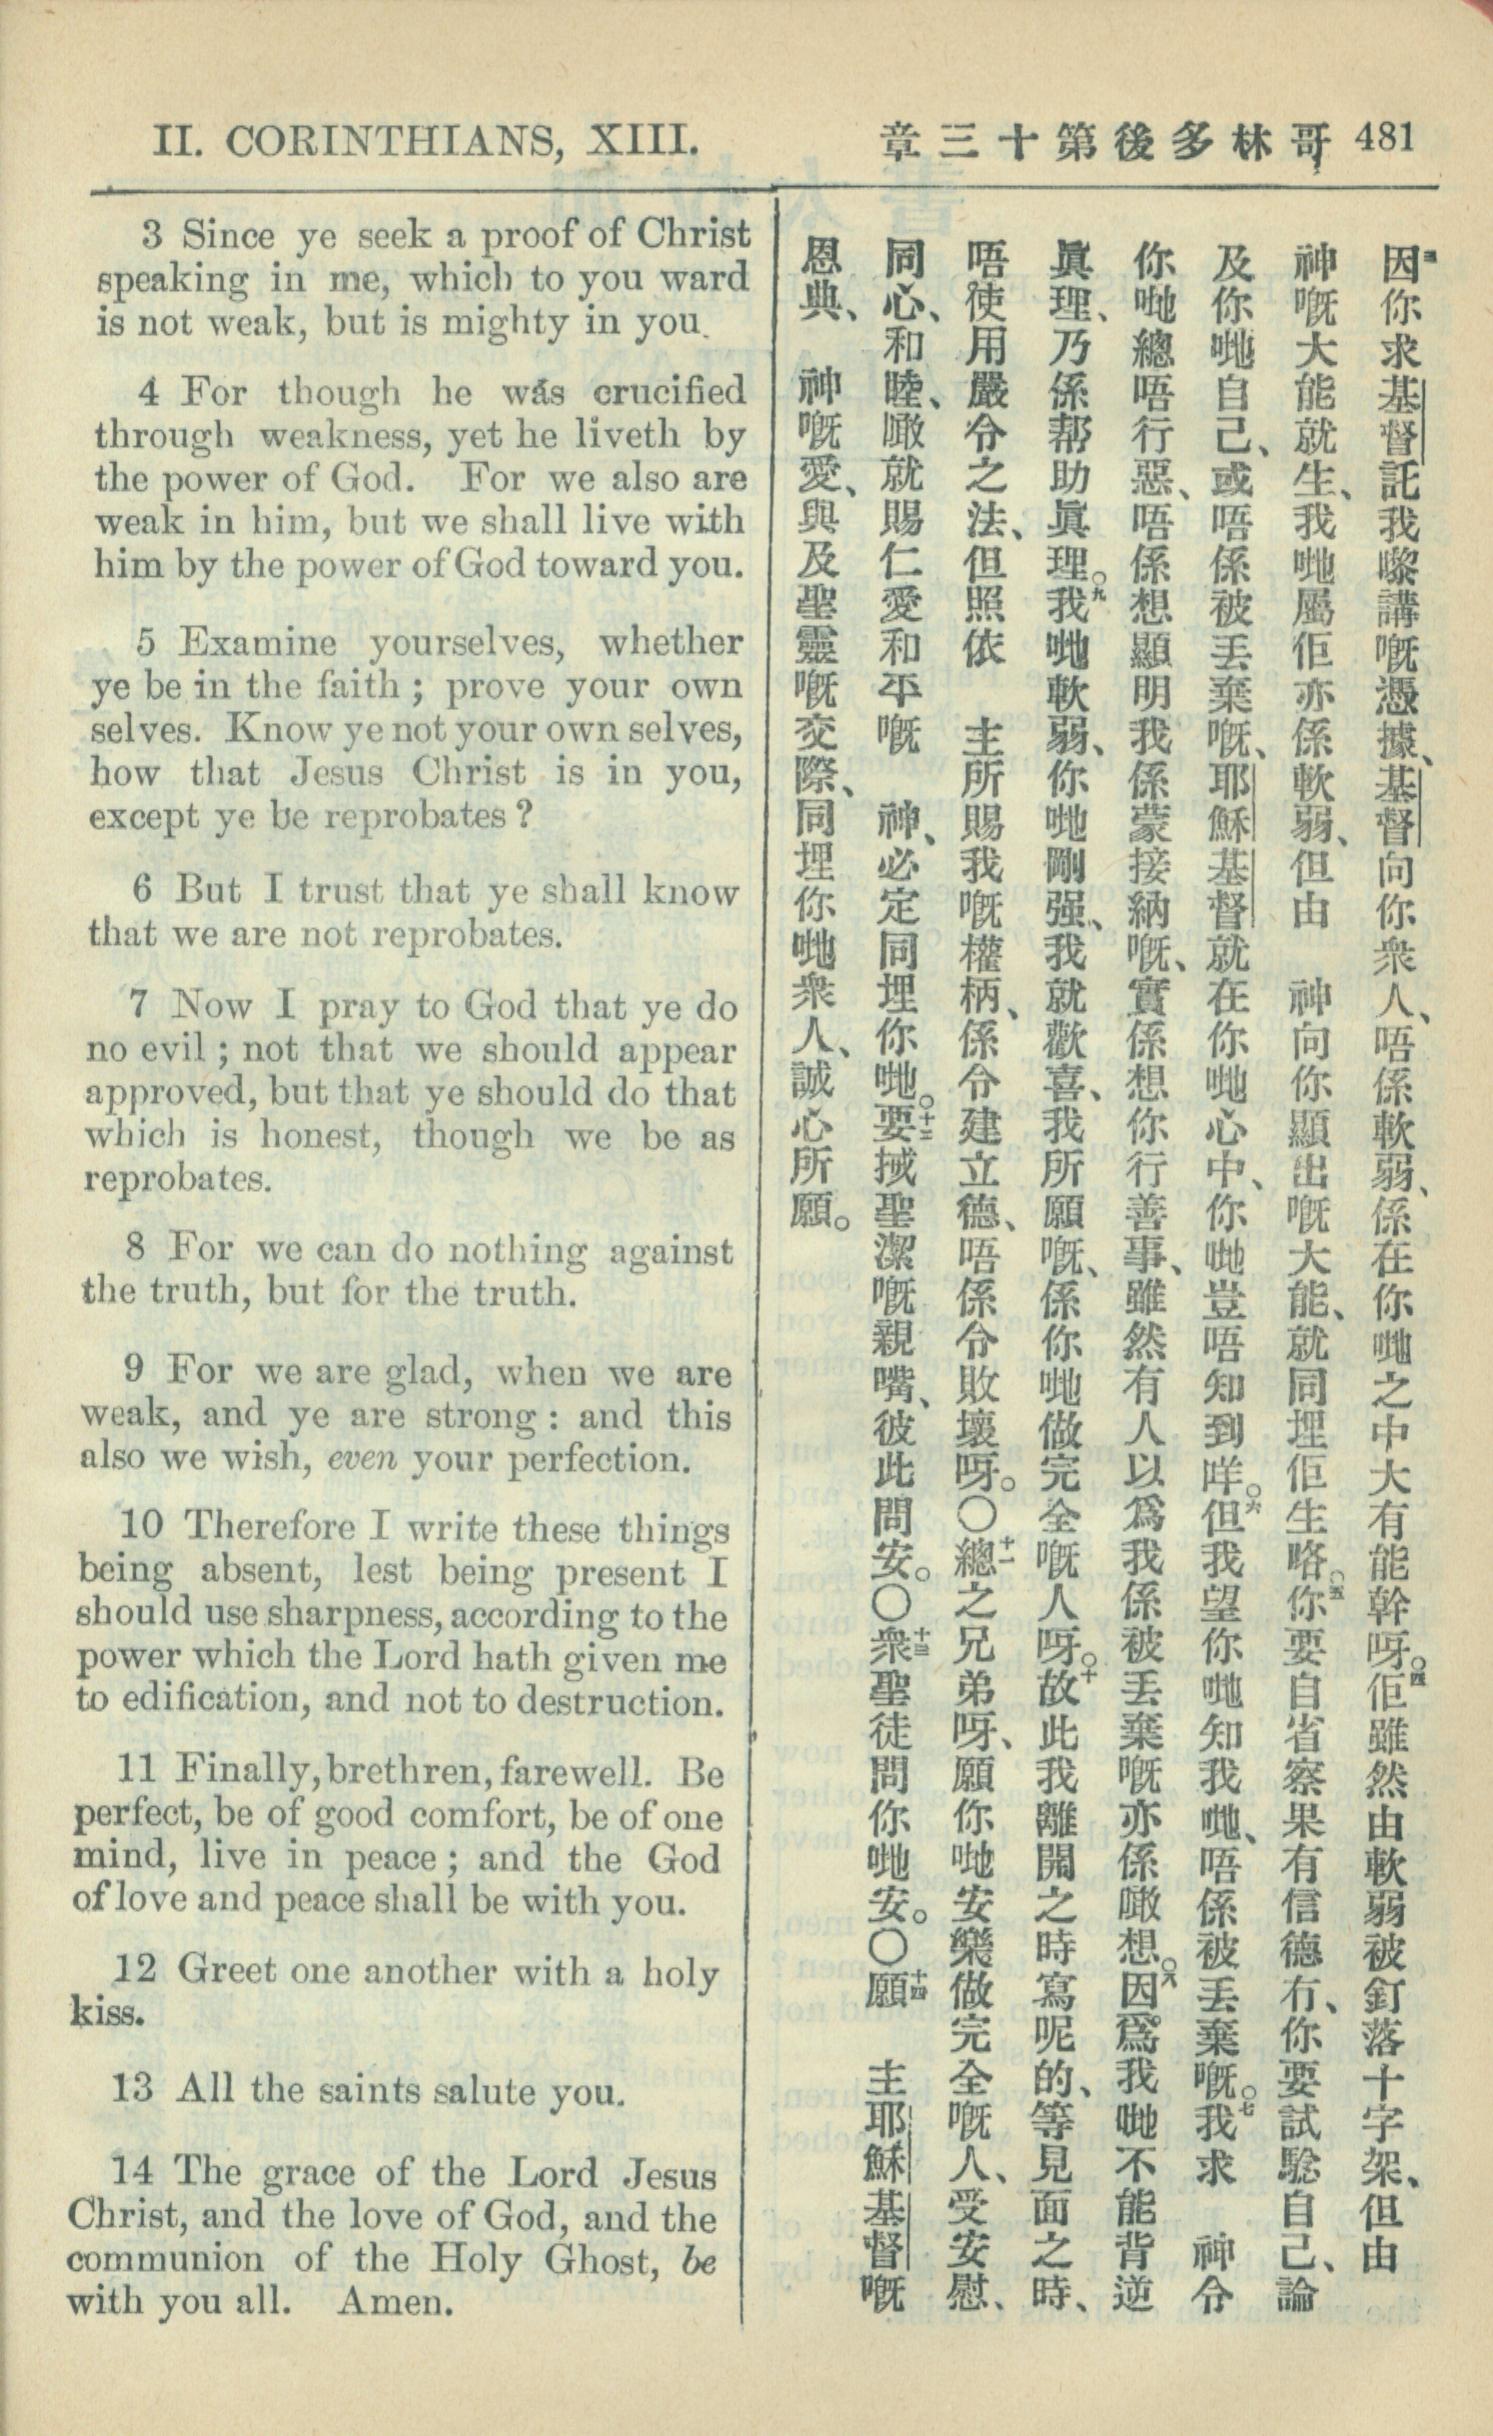 II. CORINTHIANS, XIII.
章三十第後多林哥 481
3 Since ye seek a proof of Christ
speaking in me, which to you ward
is not weak, but is mighty in you.
4 For though he was crucified
through weakness, yet he liveth by
the power of God. For we also are
weak in him, but we shall live with
him by the power of God toward you.
5 Examine yourselves, whether
ye be in the faith ; prove your own
selves. Know ye not your own selves,
how that Jesus Christ is in you,
except ye be reprobates ?
6 But I trust that ye shall know
that we are not reprobates.
7 Now I pray to God that ye do
no evil ; not that we should appear
approved, but that ye should do that
which is honest, though we be as
reprobates.
8 For we can do nothing against
the truth, but for the truth.
9 For we are glad, when we are
weak, and ye are strong : and this
also we wish, even your perfection.
10 Therefore I write these things
being absent, lest being present I
should use sharpness, according to the
power which the Lord hath given me
to edification, and not to destruction.
11 Finally, brethren, farewell. Be
perfect, be of good comfort, be of one
mind, live in peace ; and the God
of love and peace shall be with you.
12 Greet one another with a holy
kiss.
13 All the saints salute you.
14 The grace of the Lord Jesus
Christ, and the love of God, and the
communion of the Holy Ghost, be
with you all. Amen.
三因你求基督託我嚟講嘅憑據、基督向你衆人、唔係軟弱、係在你哋之中大有能幹呀。四佢雖然由軟弱被釘落十字架、但由
神嘅大能就生、我哋屬佢亦係軟弱、但由 神向你顯出嘅大能、就同埋佢生咯。五你要自省察果有信德冇、你要試騐自己、論
及你哋自己、或唔係被丟棄嘅、耶穌基督就在你哋心中、你哋豈唔知到咩。六但我望你哋知我哋、唔係被丟棄嘅。七我求 神令
你哋總唔行惡、唔係想顯明我係蒙接納嘅、實係想你行善事、雖然有人以爲我係被丟棄嘅亦係噉想。八因爲我哋不能背逆
眞理、乃係帮助眞理。九我哋軟弱、你哋剛强、我就歡喜、我所願嘅、係你哋做完全嘅人呀。十故此我離開之時寫呢的、等見面之時、
唔使用嚴令之法、但照依 主所賜我嘅權柄、係令建立德、唔係令敗壞呀。〇十一總之兄弟呀、願你哋安樂做完全嘅人、受安慰、
同心、和睦、噉就賜仁愛和平嘅 神、必定同埋你哋。十二要搣聖潔嘅親嘴、彼此問安。〇十三衆聖徒問你哋安。〇十四願 主耶穌基督嘅
恩典、 神嘅愛、與及聖靈嘅交際、同埋你哋衆人、誠心所願。